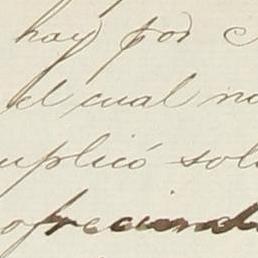 hay por
el cual no
uplicó sol
ofreciendo